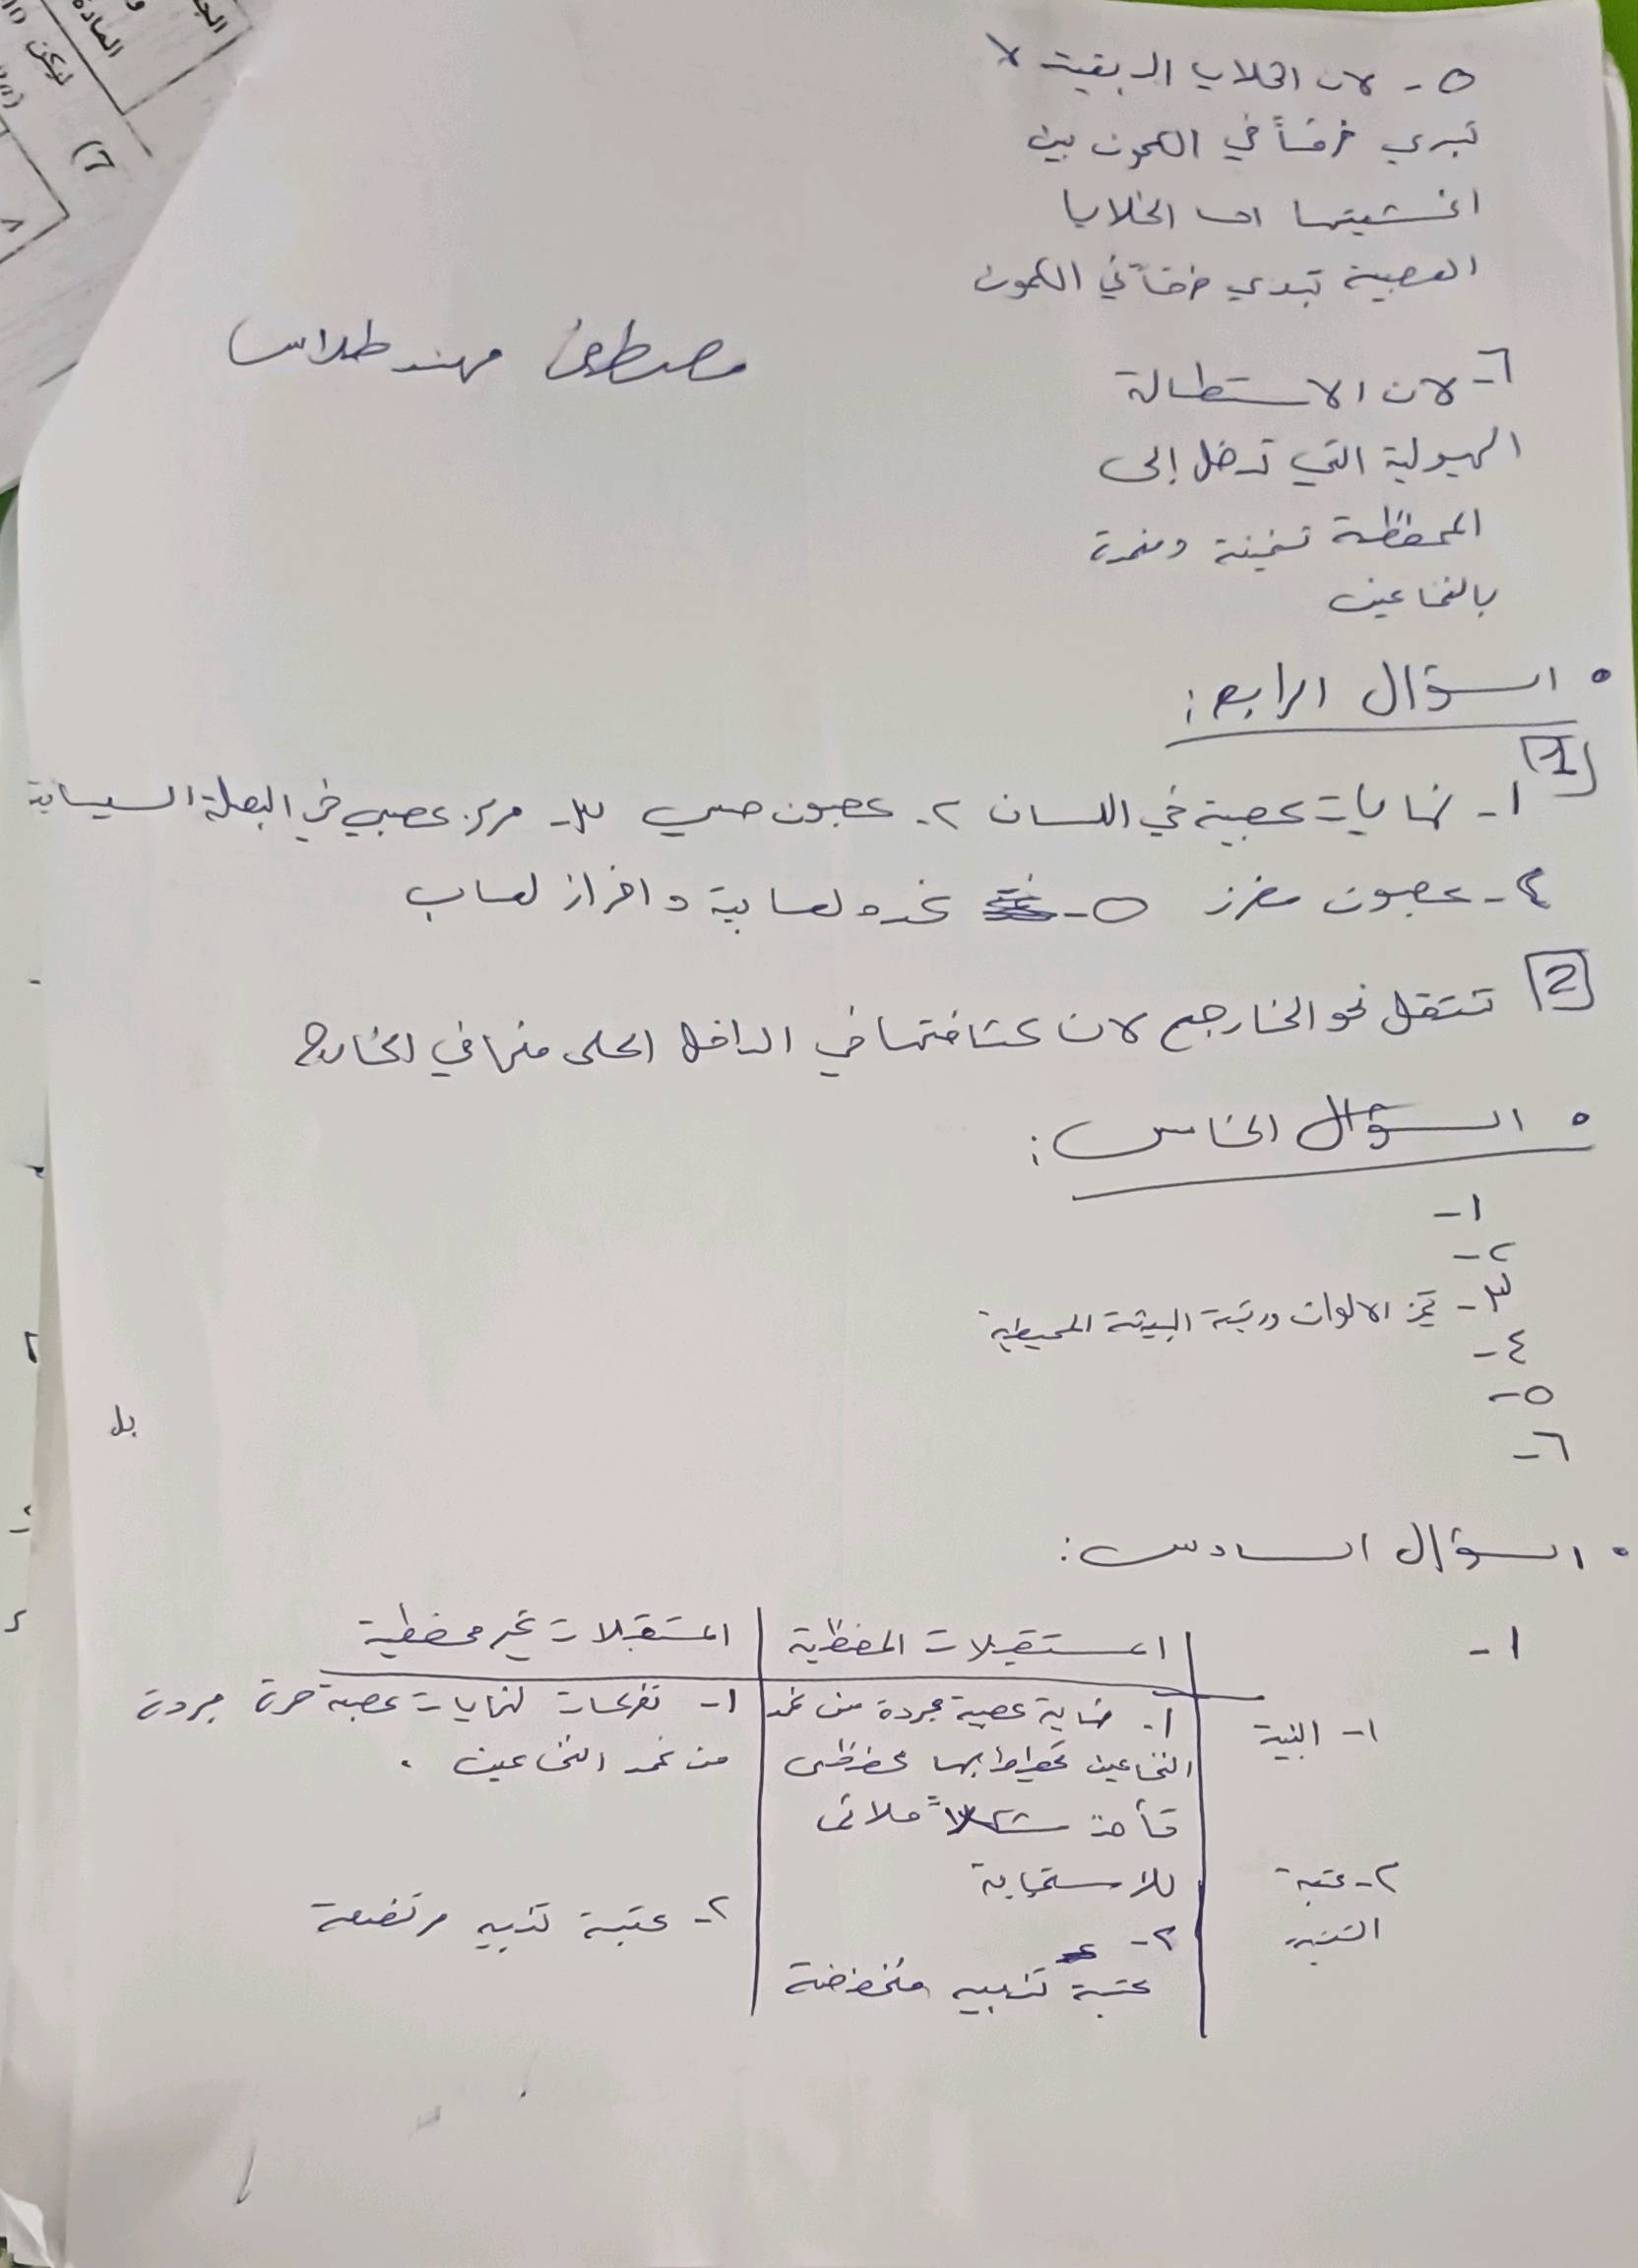 ٥- لان الخلايا الدبقية لا
تبدي فرقاً في الكمون بين
اغشيتها اما الخلايا
العصبية تبدي فرقاً في الكمون
مصطفى مهند طلاس
٦- لان الاستطالة
الهيولية التي تدخل إلى
المحفظة ثخينة ومغمدة
بالنخاعين
• السؤال الرابع:
1
١- نهايات عصبية في اللسان ٢- عصبون حسي ٣- مركز عصبي في البصلة السيسائية
٤- عصبون مفرز ٥- غدد لعابية وافراز لعاب
2 تنتقل نحو الخارج لان كثافتها في الداخل اعلى منها في الخارج
• السؤال الخامس:
١-
٢-
٣- تميز الالوان ورؤية البيئة المحيطية
٤-
٥-
بل
٦-
• السؤال السادس:
١- المستقبلات المحفظية المستقبلات غير محفظية
١- البنية ١- نهاية عصبية مجردة من غمد ١- تفرعات لنهايات عصبية حرة مجردة
النخاعين تحيط بها محفظة من غمد النخاعين.
تأخذ شكلاً ملائم
للاستجابة
٢- عتبة التنبيه ٢- عتبة تنبيه منخفضة ٢- عتبة تنبيه مرتفعة